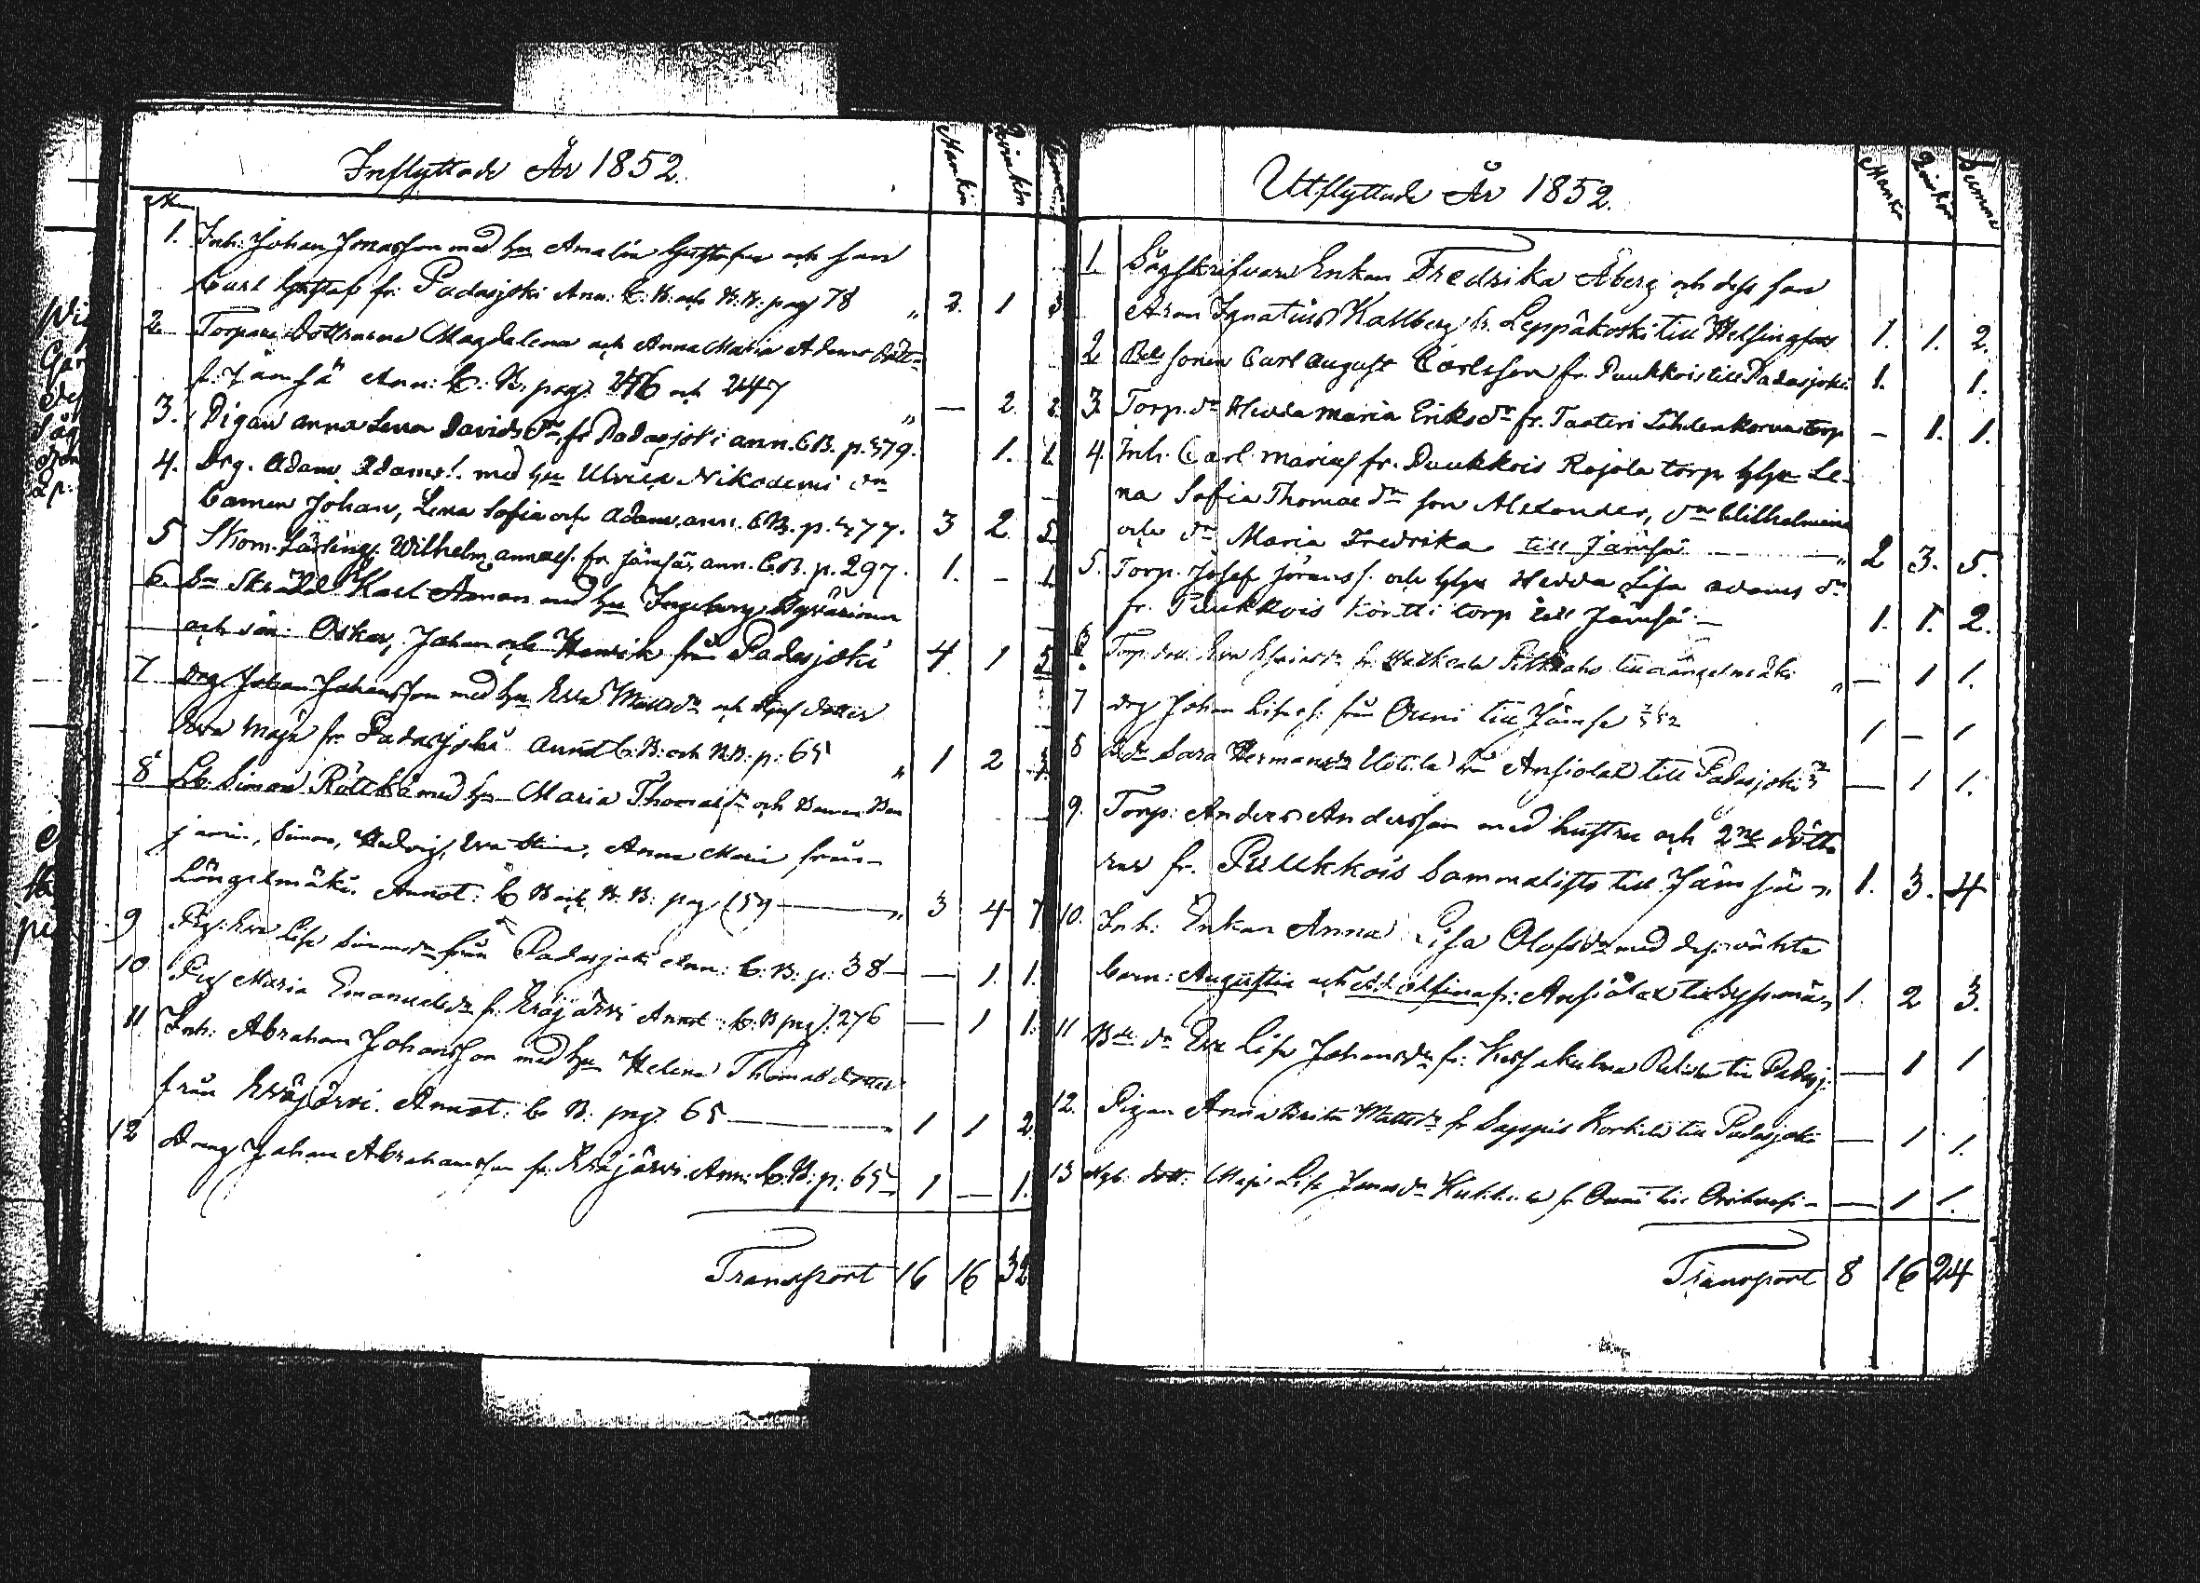 Inflyttade År 1852.
Mankön Qvinkön Summa
No
1. Inh: Johan Jonasson med hu Amalia Gustafva och son
Carl Gustaf fr. Padasjoki Ann: C: B: och B: B: pag 78 " 2. 1 3
2. Torpare Döttrarne Magdalena och Anna Maria Adams dött-
fr. Jämsä Ann: C: B: pag. 246 och 247 " — 2. 2.
3. Pigan Anna Lena Davids dr. fr Padasjoki ann. CB. p. 479. 1. 1.
4. Drg. Adam Adamss. med hu Ulrica Nikodemi dr
barnen Johan, Lena Sofia och Adam, ann. CB. p. 477. 3 2. 5.
5 Skom. Lärling Wilhelm fr Jämsä, ann. C.B. p. 297. 1. - 1.
6. Karl Åman med hu Ingeborg
och sön: Oskar, Johan och Henrik från Padasjoki 4. 1 5
7 Drg Johan Johansson med hu Eva Matts dr och dess dotter
Eva Maja fr. Padasjoki annot C: B: och B.B: p: 65 " 1 2 3.
8 Simon med hu Maria Thomas dr och Barnen Ben
jamin, Simon, Hedvig, Eva Stina, Anna Maria från
Längelmäki Annot: C B och B. B: pag 159 — " 3 4 7
9 Pig: Eva Lisa Simons dr från Padasjoki Ann: C: B: p: 38 — — 1. 1.
10 Pig Maria Emanuels dr fr. Eräjärvi Annot: C: B pag: 276 — 1 1.
11 Inh: Abraham Johansson med hu Helena Thomas dotter
från Eräjärvi. Annot: C B: pag. 65 — " 1 1 2.
12 Dreng Johan Abrahamsson fr: Eräjärvi. Ann: C: B: p: 65 — 1 — 1.
Transport 16 16 32
Utflyttade År 1852.
Mankön Qvinkön Summa
1 Sågskrifvare Enkan Fredrika Åberg och dess son
Aron Ignatius Kallberg fr. Leppäkoski till Helsingfors 1. 1. 2.
2 sonen Carl August Carlsson fr. Puukkois till Padasjoki 1. 1.
3. Torp. dr Hedda Maria Eriks dr fr. Taateri Lähdenkorva torp — 1. 1.
4. Inh. Carl fr. Puukkois Rajola torp Le-
na Sofia Thomae dr son Alexander, dr Wilhelmina
och dr Maria Fredrika till Jämsä — " 2 3. 5.
5. Torp. Josef Göranss. och Hedda Lisa Adams dr
fr. Puukkois Körtti torp till Jämsä — 1. 1. 2.
6 Torp. dott. Eva till Längelmäki " — 1 1.
7 Drg Johan från Ouni till Jämsä 1 — 1
8 Sara Hermans dr Uotila från Ansiolax till Padasjoki — 1 1.
9. Torp: Anders Andersson med hustru och 2ne dött-
rar fr. Puukkois Sammalisto till Jämsä " 1. 3. 4
10. Inh: Enkan Anna Lisa Olofs dr med dess oäkta
barn: Augusta och fr: Ansiolax till 1. 2 3.
11 dr Eva Lisa Johans dr fr: till Padasj: — 1 1
12. Pigan Anna Brita Matts dr fr Seppis Korkila till Padasjoki — 1 1.
13 dott: Maja Lisa Jonas dr fr Ouni till Orihvesi — — 1 1.
Transport 8 16 24